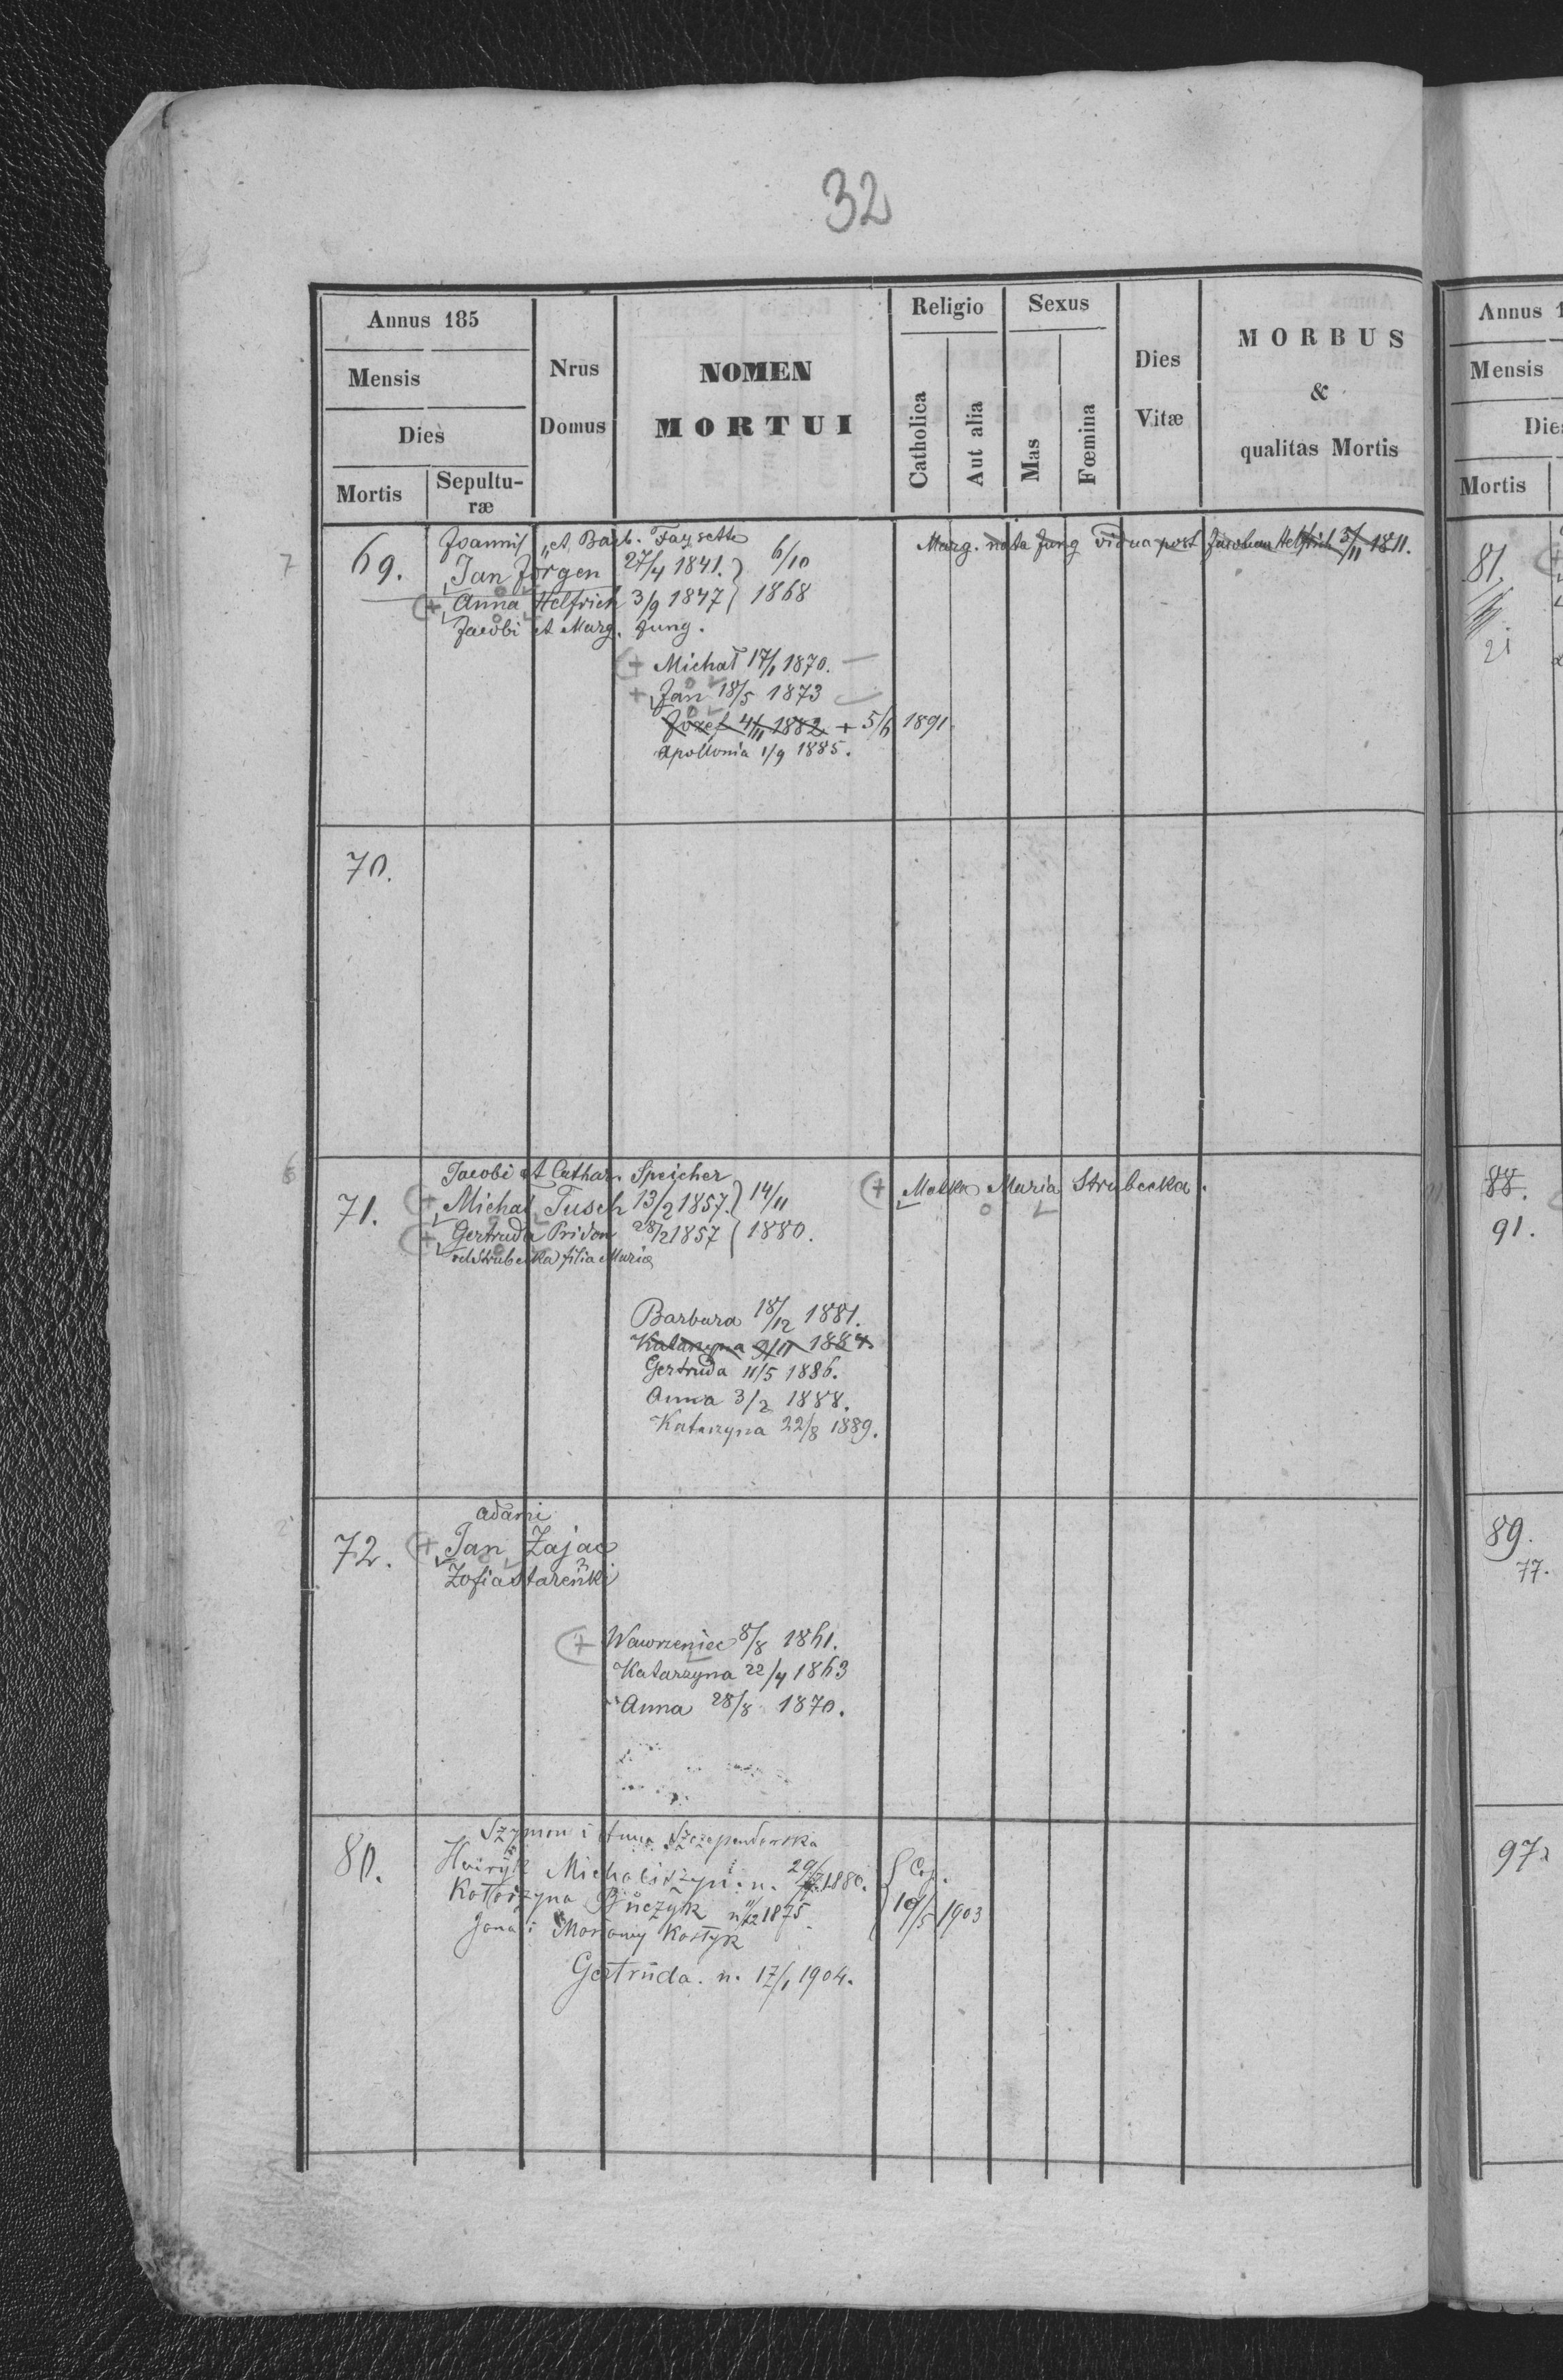 32
Annus 185
Mensis
Dies
Mortis
Sepultu-
ræ
Nrus
Domus
NOMEN
MORTUI
Religio
Catholica
Aut alia
Sexus
Mas
Fœmina
Dies
Vitæ
MORBUS
&
qualitas Mortis
7
69.
Joannis et Barb. Faysette
Jan Jorgen 27/4 1841. } 6/10
Anna Helfrich 3/9 1847 } 1868
Jacobi et Marg. Jung.
Marg. nata Jung vidua post Jacobum Helfrich 3/11 1811.
+ Michał 17/1 1870.
+ Jan 18/5 1873
Józef 4/11 1882 + 5/6 1891
Apollonia 1/9 1885.
70.
71.
Jacobi et Cathar. Speicher
+ Michał Tusch 13/2 1857. } 14/11
+ Gertruda Pridon 28/2 1857 } 1880.
vel Strubecka filia Maria
+ Matka Maria Strubecka.
Barbara 18/12 1881.
Katarzyna 9/11 1884
Gertruda 11/5 1886.
Anna 3/2 1888.
Katarzyna 22/8 1889.
72.
Adami
+ Jan Zając
Zofia Stareńki
+ Wawrzeniec 8/8 1861.
Katarzyna 22/4 1863
Anna 28/8 1870.
80.
Szymon i Anna
Michaliszyn n. 1880. { Cop.
Katarzyna n. 11/12 1875 { 10/5 1903
Jana i Kostyk
Gertruda. n. 17/1 1904.
Annus 1
Mensis
Dies
Mortis
81.
21
88.
91.
89.
77.
97